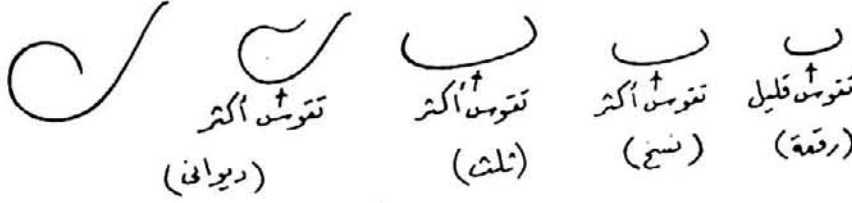 تقوس قليل
(رقعة)
تقوس أكثر
(نسخ)
تقوس أكثر
(ثلث)
تقوس أكثر
(ديوانى)